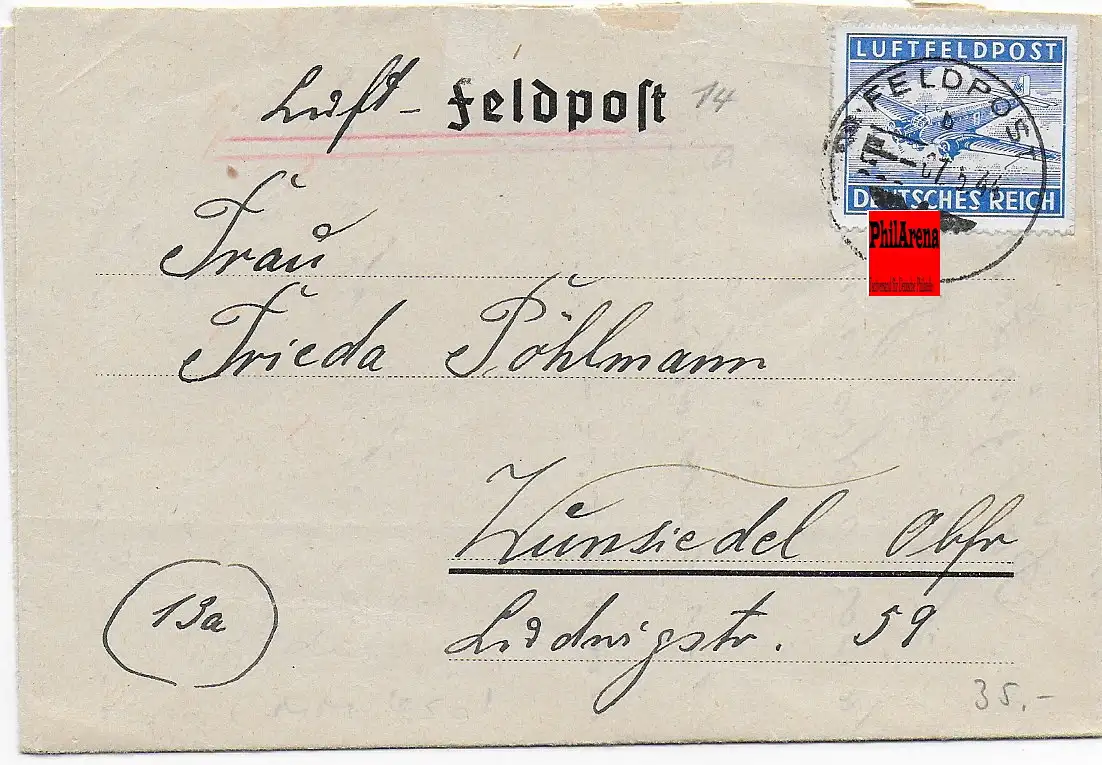 LUFTFELDPOST
Luft - Feldpost 14
FELDPOST
b
DEUTSCHES REICH
PhilArena
Frau
Frieda Pöhlmann
Wunsiedel Obfr
13a
Ludwigstr. 59
35.-